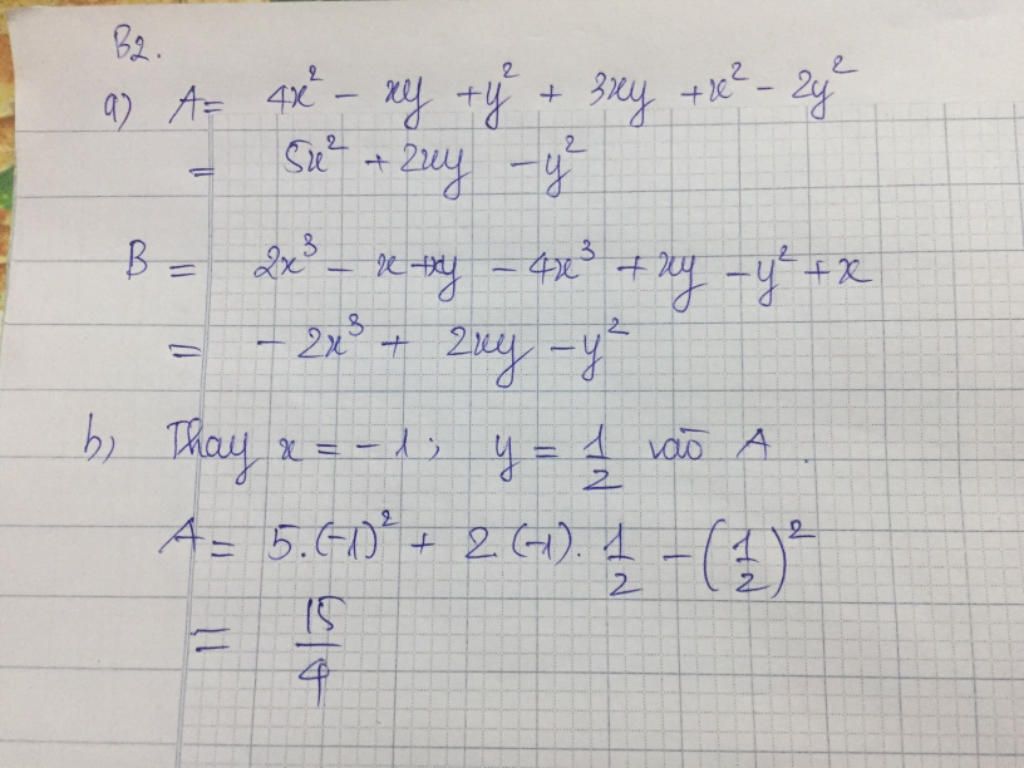 B2.
a) A = 4x² - xy + y² + 3xy + x² - 2y²
= 5x² + 2xy - y²
B = 2x³ - x + xy - 4x³ + xy - y² + x
= - 2x³ + 2xy - y²
b) Thay x = -1 ; y = 1/2 vào A.
A = 5.(-1)² + 2.(-1). 1/2 - (1/2)²
= 15/4